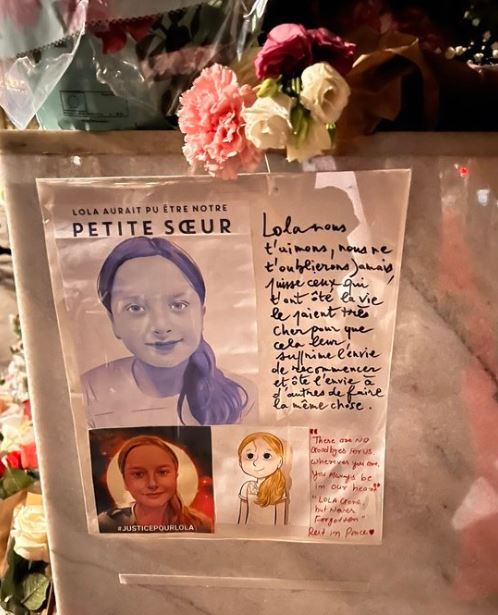 LOLA AURAIT PU ÊTRE NOTRE
PETITE SŒUR
Lola nous
t'aimons, nous ne
t'oublierons jamais,
puisse ceux qui
t'ont ôté la vie
le paient très
cher pour que
cela leur
supprime l'envie
de recommencer
et ôte l'envie à
d'autres de faire
la même chose.
#JUSTICEPOURLOLA
"There are NO
Goodbyes for us
wherever you are,
You Always be
in our heart"
"LOLA Gone,
but Never
Forgotten"
Rest in Peace